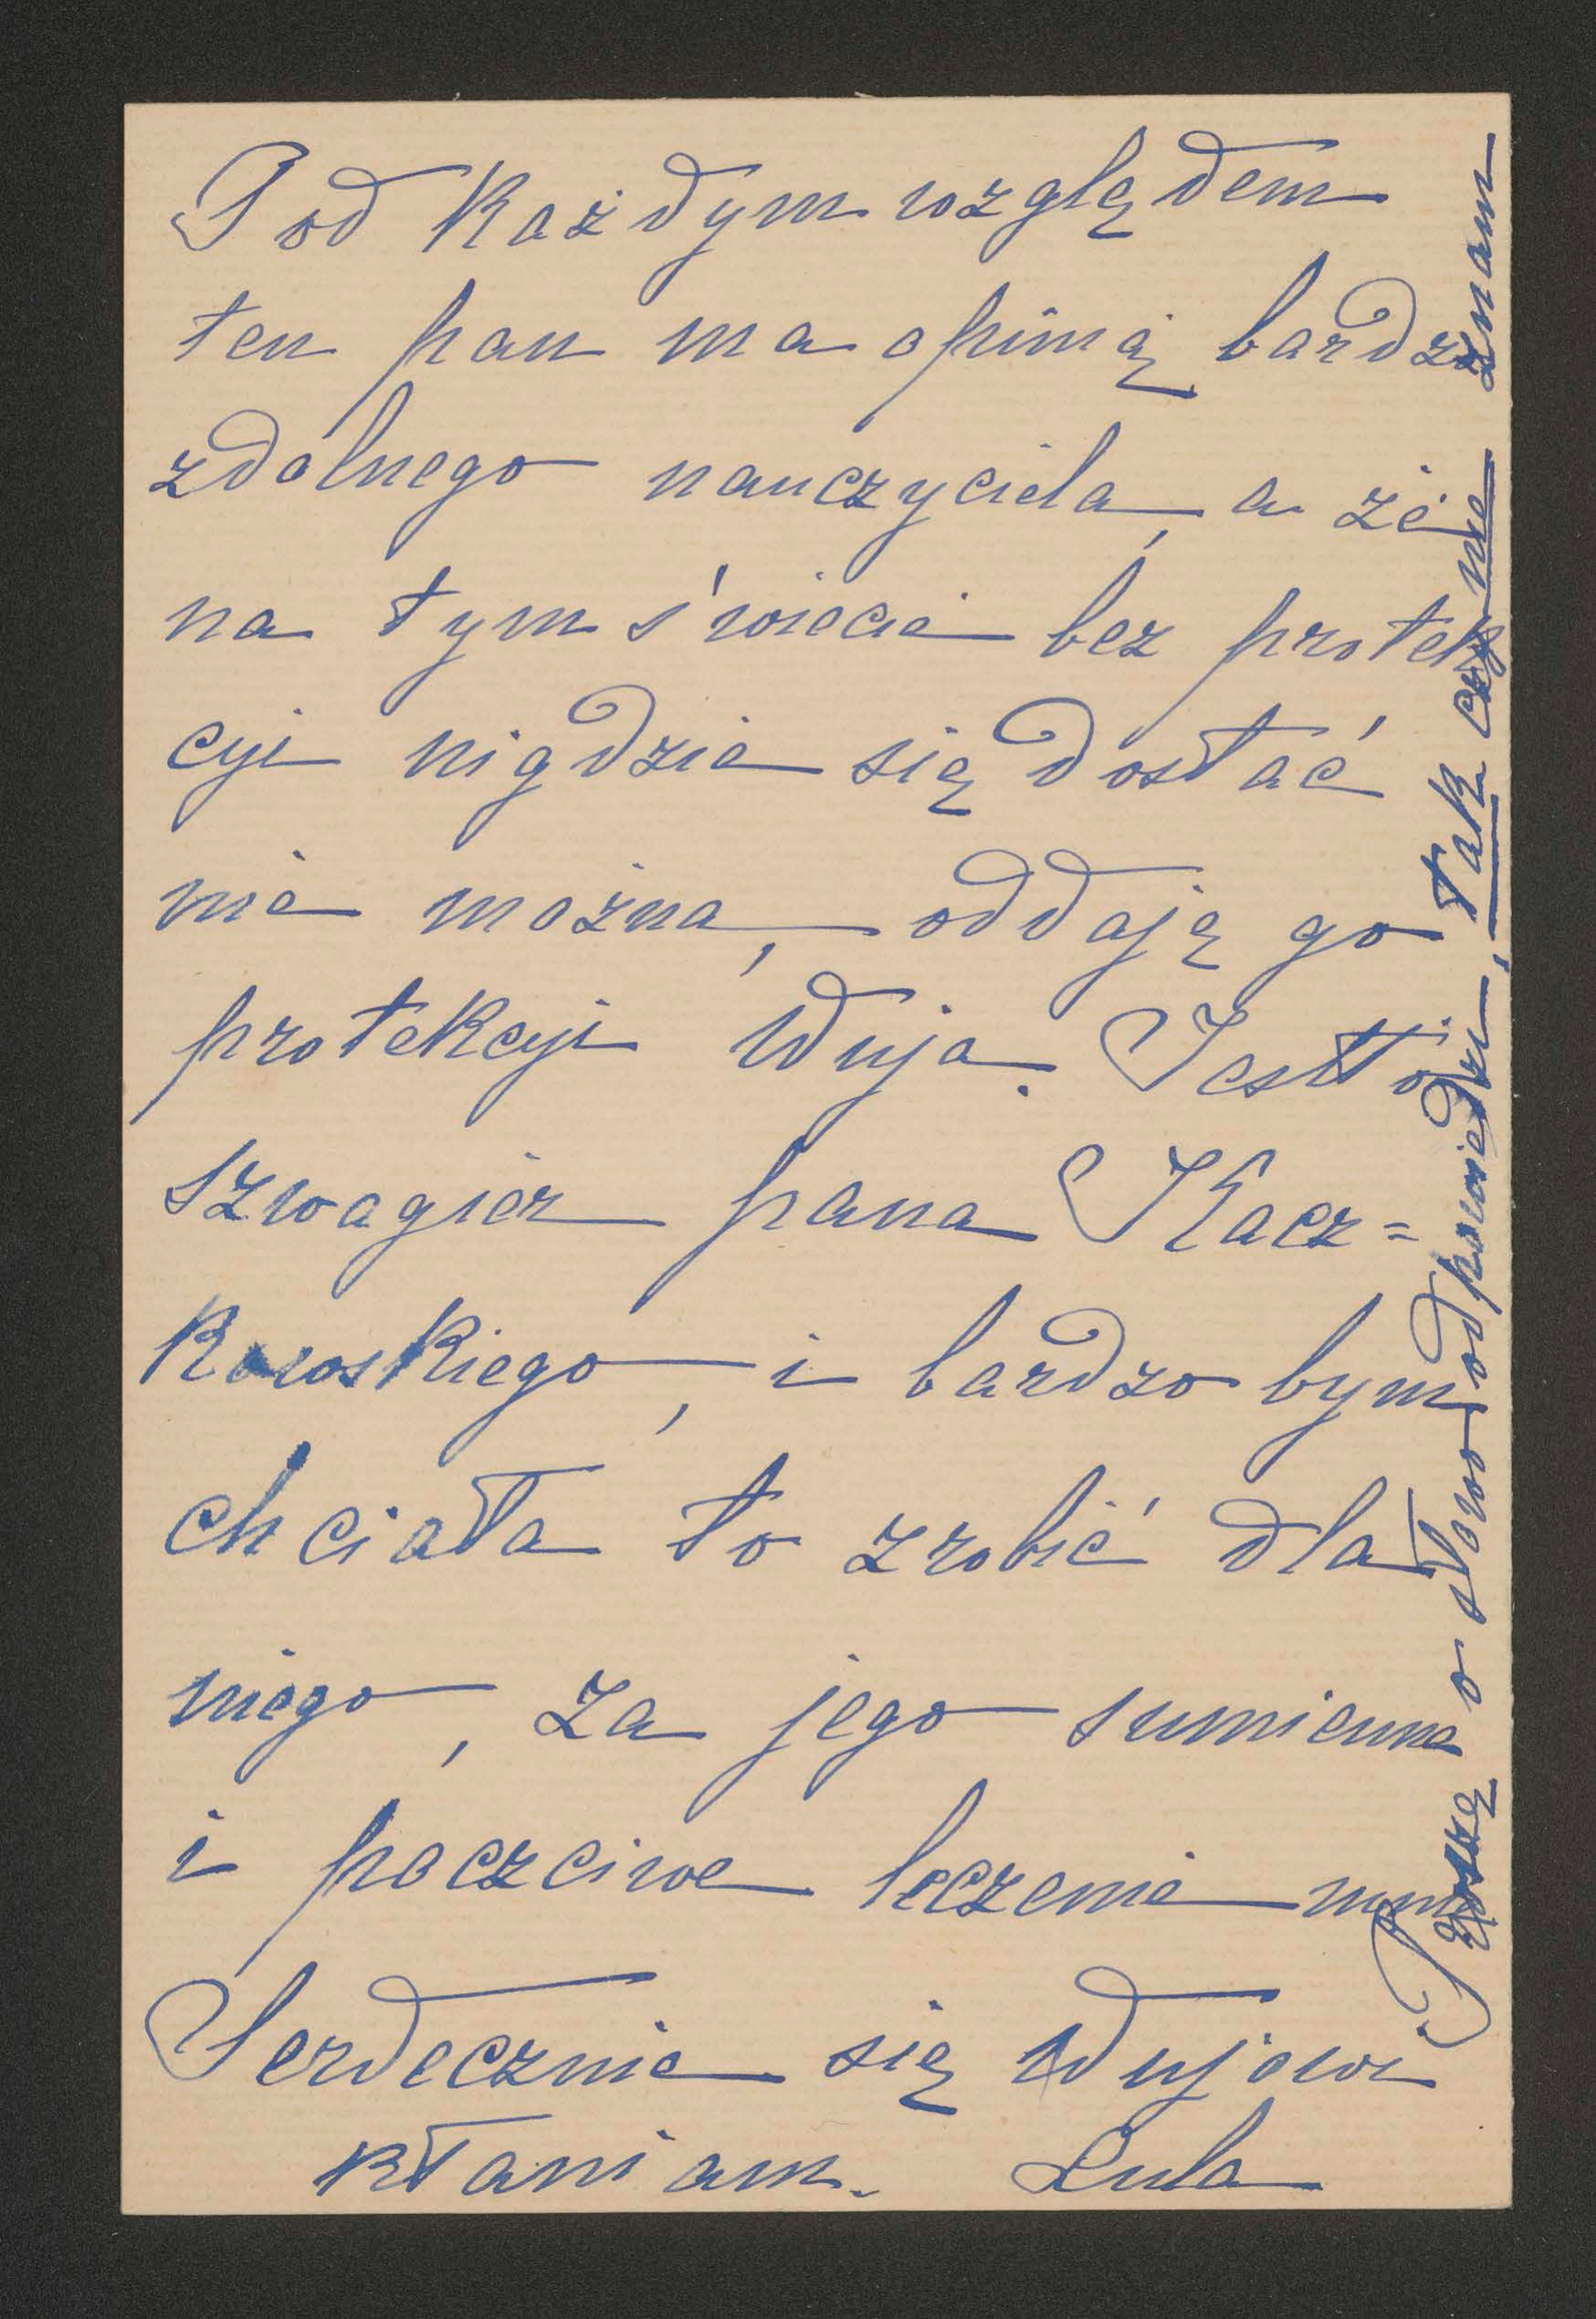 Pod każdym względem
ten pan ma opinię bardzo
zdolnego nauczyciela, a że
na tym świecie bez protek
cyi nigdzie się dostać
nie można, oddaję go
protekcyi Wuja. Jestto
szwagier pana Kacz=
kowskiego, i bardzo bym
chciała to zrobić dla
niego, za jego sumienne
i poczciwe leczenie mnie
Serdecznie się Wujowi
kłaniam. Lula
Proszę o słowo odpowiedzi, tak czy nie znam